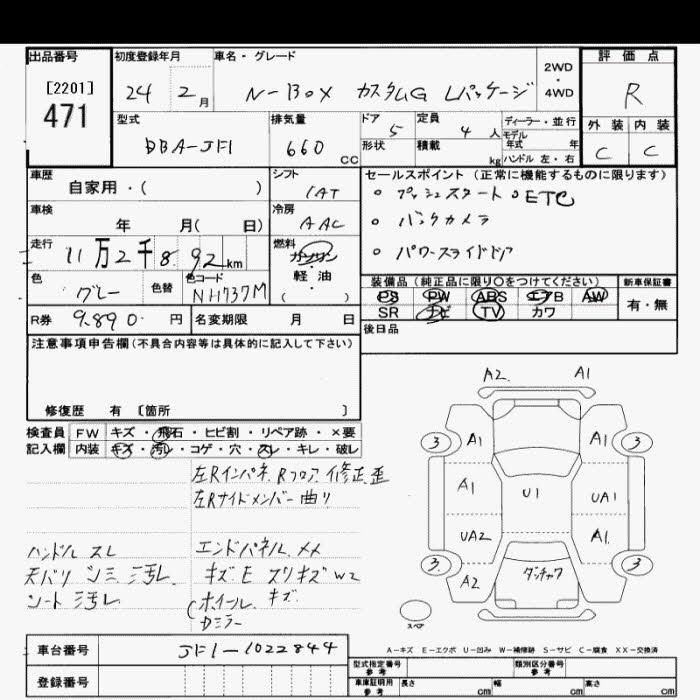 出品番号 初度登録年月 車名・グレード 評価点
[2201] 471
24 2月 N-BOX カスタムG Lパッケージ 2WD・4WD R
型式 排気量 ドア 定員 ディーラー・並行
DBA-JF1 660 CC 5 4人 モデル年式 年
形状 積載 kg ハンドル 左・右
外装 内装
C C
車歴 シフト セールスポイント(正常に機能するものに限ります)
自家用・( ) IAT
・プッシュスタート ・ETC
車検 冷房
年 月( 日) AAC
・バックカメラ
走行 燃料
11万2千892km ガソリン・軽油 ( )
・パワースライドドア
色 色替 色コード
グレー NH737M
装備品(純正品に限り○をつけてください) 新車保証書
PS PW ABS エアB AW 有・無
SR ナビ TV カワ
R券 9,890円 名変期限 月 日
後日品
注意事項申告欄(不具合内容等は具体的に記入して下さい)
修復歴 有 [箇所 ]
検査員 FW キズ・飛石・ヒビ割・リペア跡・×要
記入欄 内装 キズ・汚レ・コゲ・穴・スレ・キレ・破レ
左Rインパネ、Rフロア、修正、歪
左Rサイドメンバー曲り
ハンドル スレ
天バリ シミ 汚レ、
シート 汚レ、
エンドパネル、メメ
キズE スリキズ W2
ホイール キズ
Dミラー
A2 A1
3 A1 A1 3
A1 U1 UA1
UA2 A1
3 A2 ダッチャク 3
スペア
A-キズ E-エクボ U-凹み W-補修跡 S-サビ C-腐食 XX-交換済
車台番号 JF1-1022844
型式指定番号 参考 類別区分番号 参考
登録番号
車庫証明用 参考 長さ cm 幅 cm 高さ cm